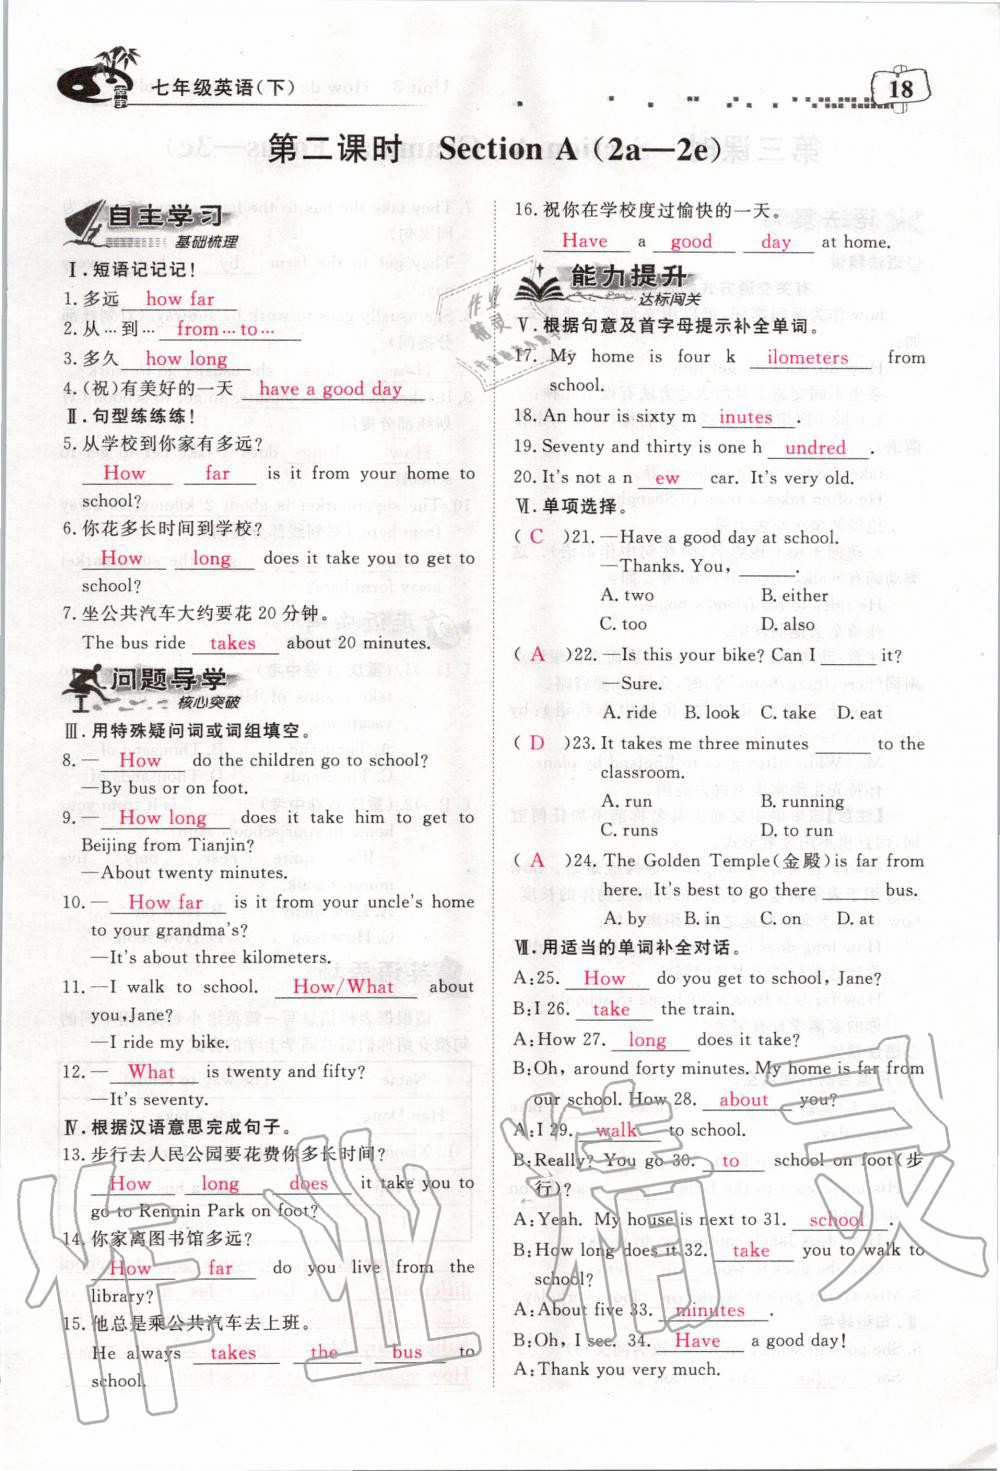 七年级英语(下)
18
第二课时 Section A (2a—2e)
自主学习
基础梳理
Ⅰ.短语记记记!
1.多远 how far
2.从…到… from…to…
3.多久 how long
4.(祝)有美好的一天 have a good day
Ⅱ.句型练练练!
5.从学校到你家有多远?
How far is it from your home to
school?
6.你花多长时间到学校?
How long does it take you to get to
school?
7.坐公共汽车大约要花20分钟。
The bus ride takes about 20 minutes.
问题导学
核心突破
Ⅲ.用特殊疑问词或词组填空。
8.— How do the children go to school?
—By bus or on foot.
9.— How long does it take him to get to
Beijing from Tianjin?
—About twenty minutes.
10.— How far is it from your uncle's home
to your grandma's?
—It's about three kilometers.
11.—I walk to school. How/What about
you,Jane?
—I ride my bike.
12.— What is twenty and fifty?
—It's seventy.
Ⅳ.根据汉语意思完成句子。
13.步行去人民公园要花费你多长时间?
How long does it take you to
go to Renmin Park on foot?
14.你家离图书馆多远?
How far do you live from the
library?
15.他总是乘公共汽车去上班。
He always takes the bus to
school.
16.祝你在学校度过愉快的一天。
Have a good day at home.
能力提升
达标闯关
Ⅴ.根据句意及首字母提示补全单词。
17. My home is four k ilometers from
school.
18.An hour is sixty m inutes.
19.Seventy and thirty is one h undred.
20.It's not a n ew car. It's very old.
Ⅵ.单项选择。
( C )21.—Have a good day at school.
—Thanks. You, ______.
A. two B. either
C. too D. also
( A )22.—Is this your bike? Can I ______ it?
—Sure.
A. ride B. look C. take D. eat
( D )23.It takes me three minutes ______ to the
classroom.
A. run B. running
C. runs D. to run
( A )24.The Golden Temple(金殿)is far from
here. It's best to go there ______ bus.
A. by B. in C. on D. at
Ⅶ.用适当的单词补全对话。
A:25. How do you get to school, Jane?
B:I 26. take the train.
A:How 27. long does it take?
B:Oh, around forty minutes. My home is far from
our school. How 28. about you?
A:I 29. walk to school.
B:Really? You go 30. to school on foot(步
行)?
A:Yeah. My house is next to 31. school.
B:How long does it 32. take you to walk to
school?
A:About five 33. minutes.
B:Oh, I see. 34. Have a good day!
A:Thank you very much.
作业精灵